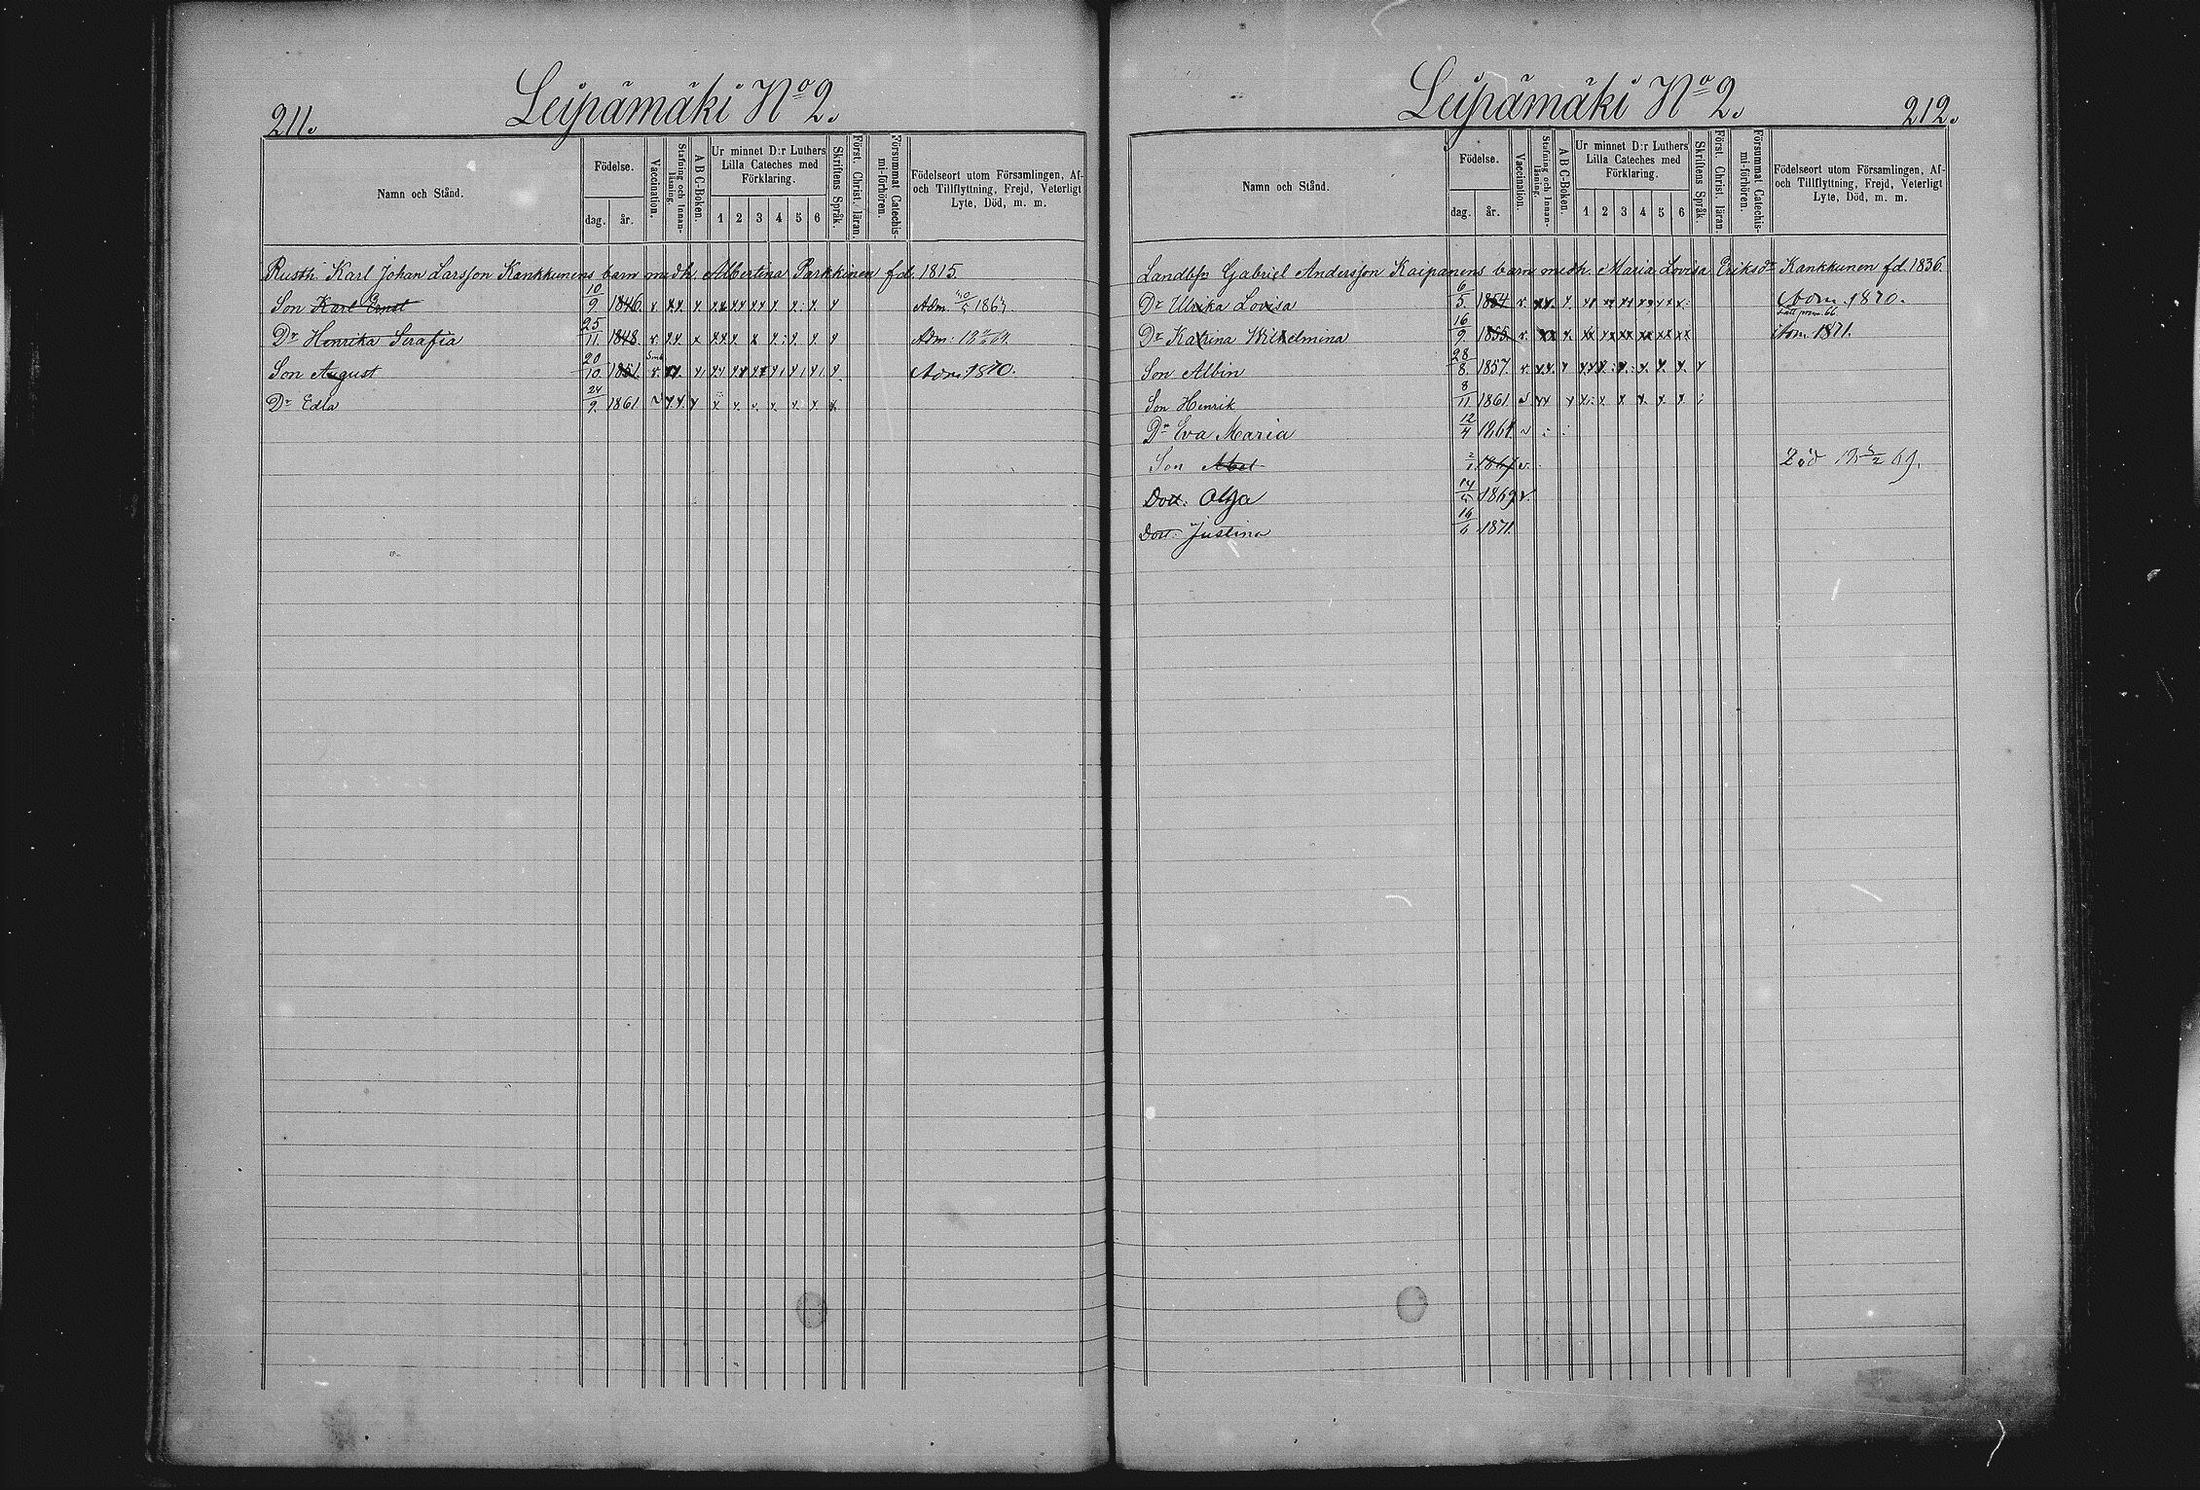 211.
Leipämäki No 2.
Namn och Stånd.
Födelse.
dag.
år.
Vaccination.
Stafning och Innanläsning.
A B C-Boken.
Ur minnet D:r Luthers Lilla Cateches med Förklaring.
1 2 3 4 5 6
Skriftens Språk.
Först. Christ. läran.
Försummat Catechismi-förhören.
Födelseort utom Församlingen, Af- och Tillflyttning, Frejd, Veterligt Lyte, Död, m. m.
Rusth. Karl Johan Larsson Kankkunens barn medh. Albertina Parkkinen fd. 1815.
Son Karl Ernst 10/9 1846. Adm.
Dr Henrika Serafia 25/11 1848. Adm:
Son August 20/10 1851. Adm. 1870.
Dr Edla 24/9 1861
Leipämäki No 2.
212.
Namn och Stånd.
Födelse.
dag.
år.
Vaccination.
Stafning och Innanläsning.
A B C-Boken.
Ur minnet D:r Luthers Lilla Cateches med Förklaring.
1 2 3 4 5 6
Skriftens Språk.
Först. Christ. läran.
Försummat Catechismi-förhören.
Födelseort utom Församlingen, Af- och Tillflyttning, Frejd, Veterligt Lyte, Död, m. m.
Landbn Gabriel Andersson Kaipanens barn medh. Maria Lovisa Eriksdr Kankkunen fd. 1836.
Dr Ulrika Lovisa 6/5. 1854 Adm. 1870.
Dr Katrina Wilhelmina 16/9. 1855 Adm. 1871.
Son Albin 28/8. 1857.
Son Henrik 8/11 1861.
Dr Eva Maria 12/4 1864
Son Abel 2/1 1867 Död
Dott. Olga 1869
Dott. Justina 1871.